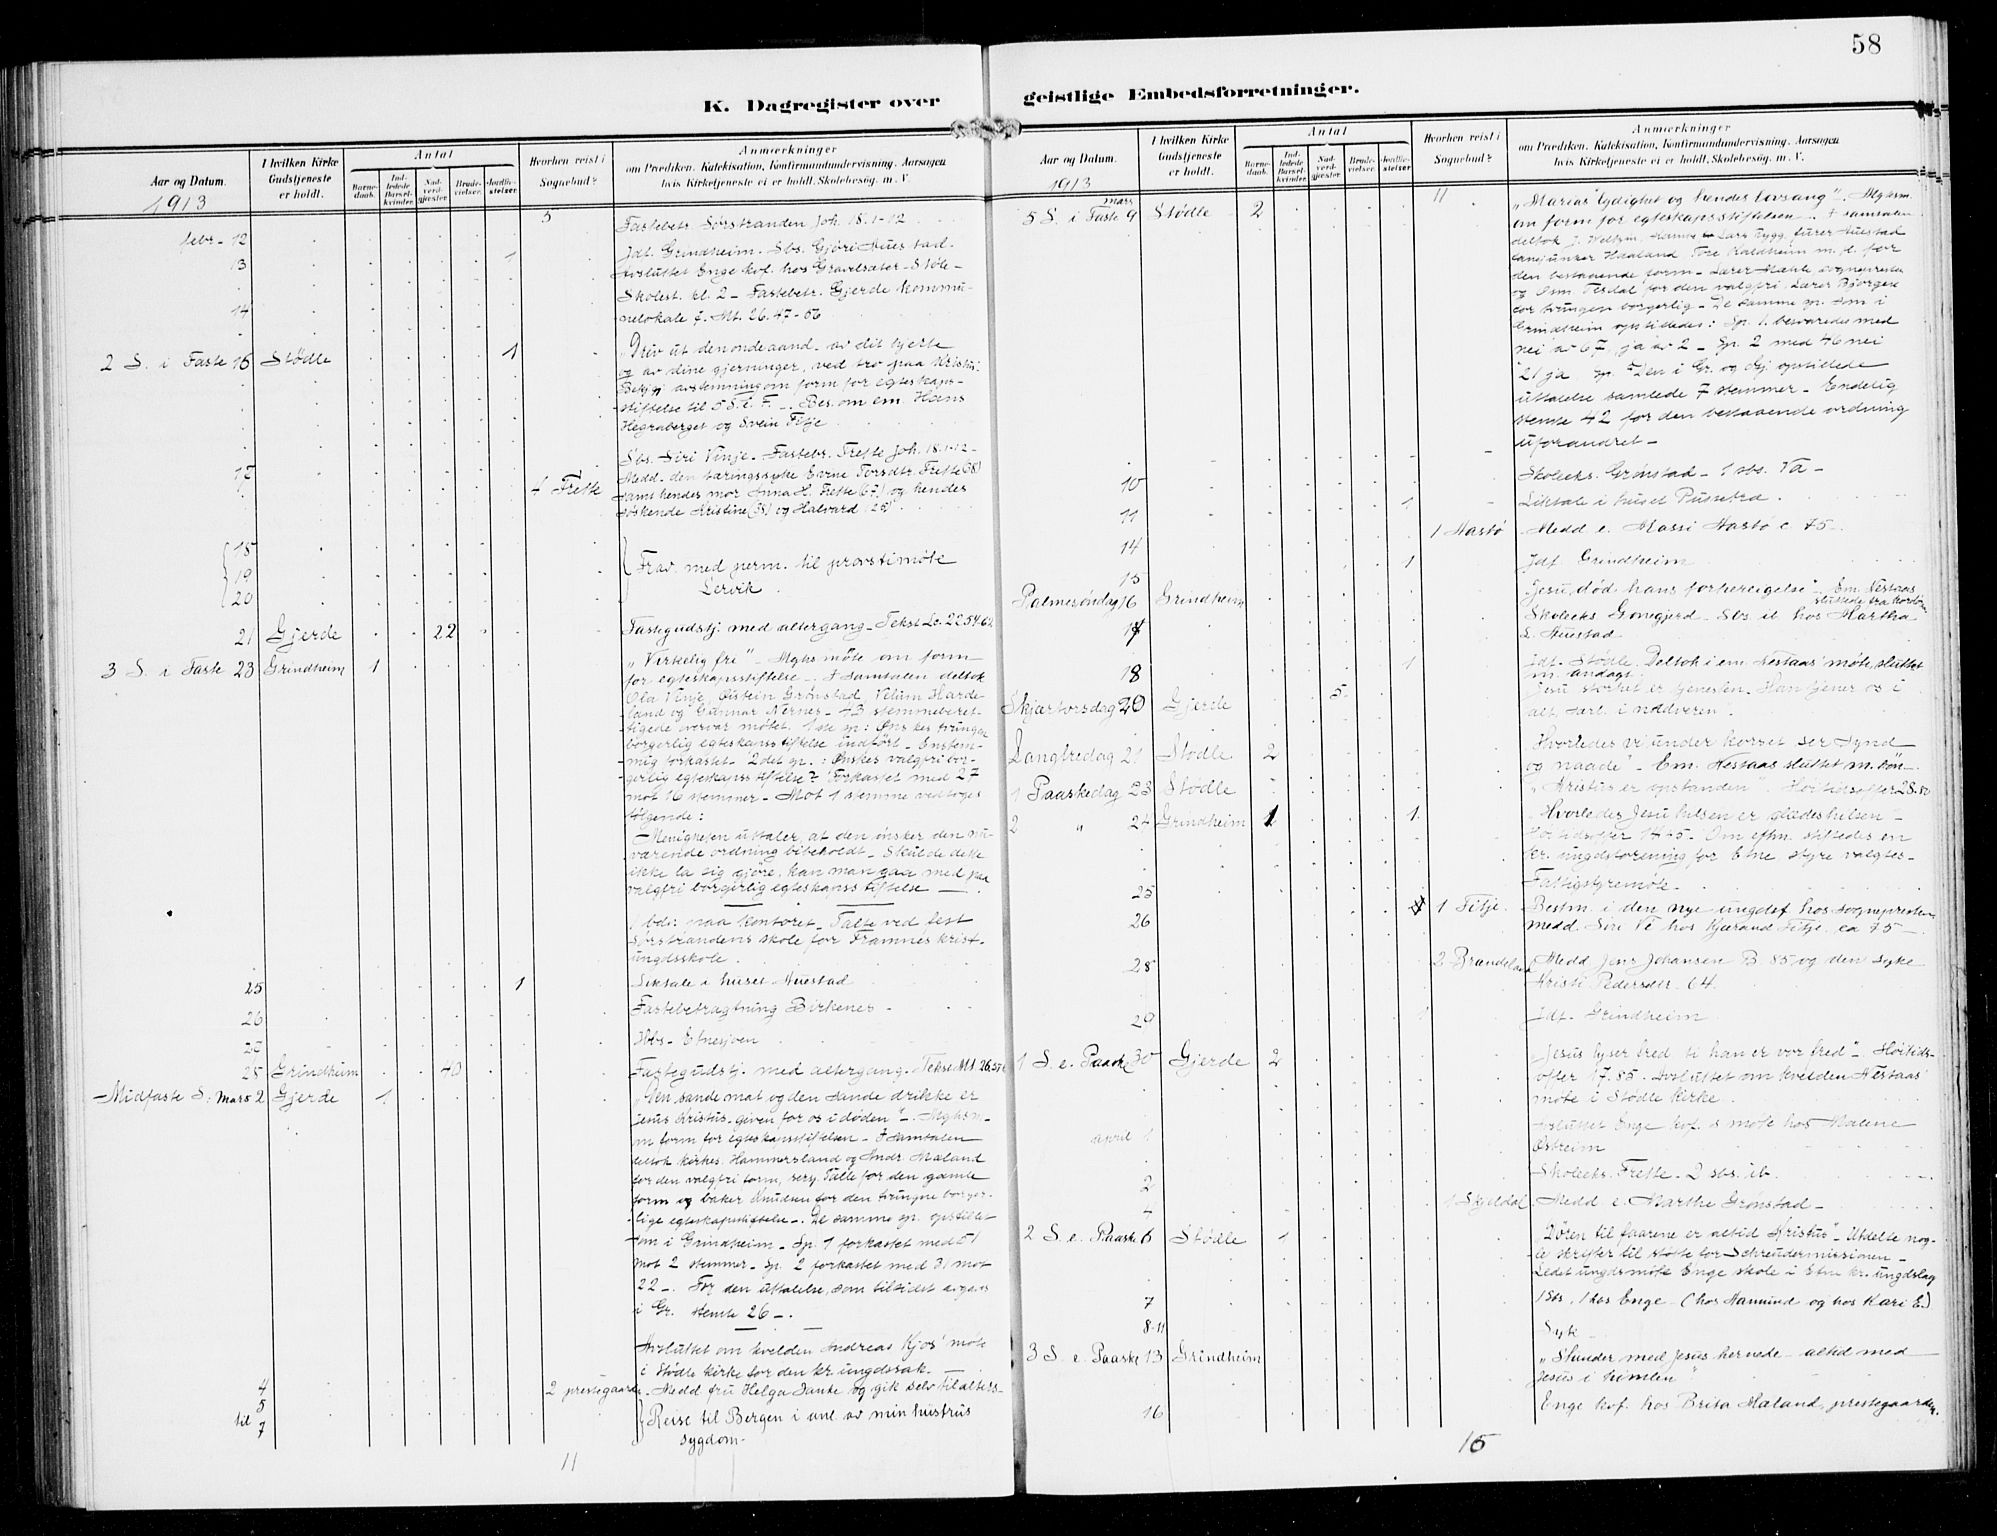 58
K. Dagregister over
geistlige Embedsforretninger.
Aar og Datum.
1913
I hvilken Kirke
Gudstjeneste
er holdt.
Antal
Barne-
daab.
Ind-
ledede
Barsel-
kvinder.
Nad-
verd-
gjæster
Brude-
vielser.
Jordfæ-
stelser.
Hvorhen reist i
Sognebud?
Anmærkninger
om Prædiken. Katekisation, Konfirmandundervisning. Aarsagen
hvis Kirketjeneste ei er holdt. Skolebesög. m. V.
3
febr. 12 Fastebetr. Sørstranden Joh. 18.1-12
13 1 Jdf. Grindheim. Sbs. Gjøri Auestad.
Avsluttet Enge kof. hos Gravelsæter - Støle -
14 Skolest. kl. 2 - Fastebetr. Gjerde kommu-
nelokale f. Mt. 26.47-56
2 S. i Faste 16 Stødle 1 „Driv ut den onde aand av dit hjerte
og av dine gjerninger, ved tro paa Kristus:
avstemning om form for egteskaps-
stiftelse til 5 S. i F. - Bes. om em Hans
Hegraberget og Svein Fitje
17 4 Frette Sbs. Siri Vinje. Fastebr. Frette Joh. 18.1-12 -
Medd. den tæringssyke Erne Torsdtr. Frette (38)
samt hendes mor Anna H. Frette (67) og hendes
søskende Kristine (38) og Halvard (28)
18
19
20
Frav. med perm. til provstimøte
Lervik
21 Gjerde 22 Fastegudstj. med altergang - Tekst Lc. 22.54-62
3 S. i Faste 23 Grindheim 1 „Virkelig fri" - Mghsmøte om form
for egteskapsstiftelse - I samtalen deltok
Ola Vinje, Øistein Grønstad, Velum Harde-
land og Gunnar Nernes - 43 stemmeberet-
tigede overvar møtet. 1ste sp: Ønskes tvungen
borgerlig egteskapsstiftelse indført - Enstem-
mig forkastet - 2det sp.: Ønskes valgfri bor-
gerlig egteskapsstiftelse? Forkastet med 27
mot 16 stemmer - Mot 1 stemme vedtoges
følgende:
Menigheten uttaler, at den ønsker den nu-
værende ordning bibeholdt - Skulde dette
ikke la sig gjøre, kan man gaa med paa
valgfri borgerlig egteskapsstiftelse -
1 bd: paa kontoret - Talte ved fest
Sørstrandens skole for Framnes krist.
ungdsskole.
25 1 Liktale i huset Auestad
26 Fastebetragtning Birkenes -
Hbs - Etnesjøen
28 Grindheim 40 Fastegudstj. med altergang. Tekst Mt. 26.57
Midfaste S. Mars 2 Gjerde 1 „Den sande mat og den sande drikke er
Jesus Kristus, given for os i døden" - Mghsm.
om form for egteskapsstiftelsen - I samtalen
deltok kirkes. Hammersland og Andr. Mæland
for den valgfri form, serg. Tatle for den gamle
form og baker Knudsen for den tvungne borger-
lige egteskapsstiftelse - De samme sp. opstillet
som i Grindheim - Sp. 1 forkastet med 51
mot 2 stemmer - sp. 2 forkastet med 31 mot
22 - For den uttalelse, som tiltidet avgaas
i Gr. stemte 26 -
Avsluttet om kvelden Andreas Kjos' møte
i Stødle kirke for den kr. ungdssak -
4 2 prestegaarden Medd fru Helga Sante og gik selv til alters -
5
til
7
Reise til Bergen i anl. av min hustrus
sygdom -
11
Aar og Datum.
1913
I hvilken Kirke
Gudstjeneste
er holdt.
Antal
Barne-
daab.
Ind-
ledede
Barsel-
kvinder.
Nad-
verd-
gjæster
Brude-
vielser.
Jordfæ-
stelser.
Hvorhen reist i
Sognebud?
Anmærkninger
om Prædiken. Katekisation, Konfirmandundervisning. Aarsagen
hvis Kirketjeneste ei er holdt. Skolebesög. m. V.
11
mars
5 S. i Faste 9 Stødle 2 „Marias lydighet og hendes lovsang". Mghsm.
om form for egteskapsstiftelsen - I samtalen
deltok J. Lars Rygg, lærer Auestad
Haaland Tore Kaldheim m. fl. for
den bestaaende form - Lærer Mæhle sognepresten
og Osm Tesdal for den valgfri. Lærer Bjørgen
for tvungen borgerlig - De samme sp. som i
Grindheim opstilledes: Sp. 1. besvaredes med
nei av 67, ja av 2 - Sp. 2 med 46 nei
21 ja sp. Den i Gr. og Gj opstillede
uttalelse samlede 7 stemmer - Endelig
stemte 42 for den bestaaende ordning
uforandret -
10 Skoleeks. Grønstad - 1 sbs. Va -
11 1 Liktale i huset
14 1 Hastø Medd e. Massi Hastø c 75 -
15 1 Jdf. Grindheim
Palmesøndag 16 Grindheim „Jesu død hans forherligelse" - Em. Nestaas
sluttede fra
17 Skoleeks Gonegjerd - Sbs. hos Martha
L. Auestad
18 1 Jdf. Stødle. Deltok i em. Nestaas' møte, sluttet
m. andagt.
Skjærtorsdag 20 Gjerde 5 Jesu storhet er tjenesten. Han tjener os i
alt, særl. i nadveren".
Langfredag 21 Stødle 2 „Hvorledes vi under korset ser synd
og naade" - Em. Nestaas sluttet m. bøn -
1 Paaskedag 23 Stødle „Kristus er opstanden" Høitidsoffer 28.50
2 " 24 Grindheim 1 1 „Hvorledes Jesu hilsen er glædeshilsen -
Høitidsoffer 14.45 - Om eftm. stiftedes en
kr. ungdsforening for Etne, styre valgtes -
25 Fattigstyremøte -
26 1 Fitje. Bestm. i den nye ungdsf. hos sognepresten
medd. Siri Vé hos Kjærand Fitje ca 75 -
28 2 Brandeland Medd Jens Johansen B 85, og den syke
Kristi Pedersdtr. 64.
29 1 Jdf. Grindheim
1 S. e. Paaske 30 Gjerde 2 „Jesus lyser fred ti han er vor fred" - Høitids-
offer 17.85. Avsluttet om kvelden Nestaas'
møte i Stødle kirke.
april 1 Avsluttet Enge kof. s møte hos Malene
Østreim
2 Skoleeks. Frette - 2 sbs. ib -
4 1 Skjeldal Medd e. Marthe Grønstad -
2 S. e. Paaske 6 Stødle 1 „Døren til faarene er altid Kristus" - Utdelte nog-
le skrifter til støtte for Schreudermissionen -
Ledet ungdsmøte Enge skole i Etne kr. ungdslag
7 1 Sbs, 1 hos Enge - (hos Hamund og hos Kari E.)
8-11 Syk -
3 S. e. Paaske 13 Grindheim „Stunder med Jesus hernede - altid med
Jesus i himlen"
16 Enge kof. hos Brita Mæland, prestegaarden.
15